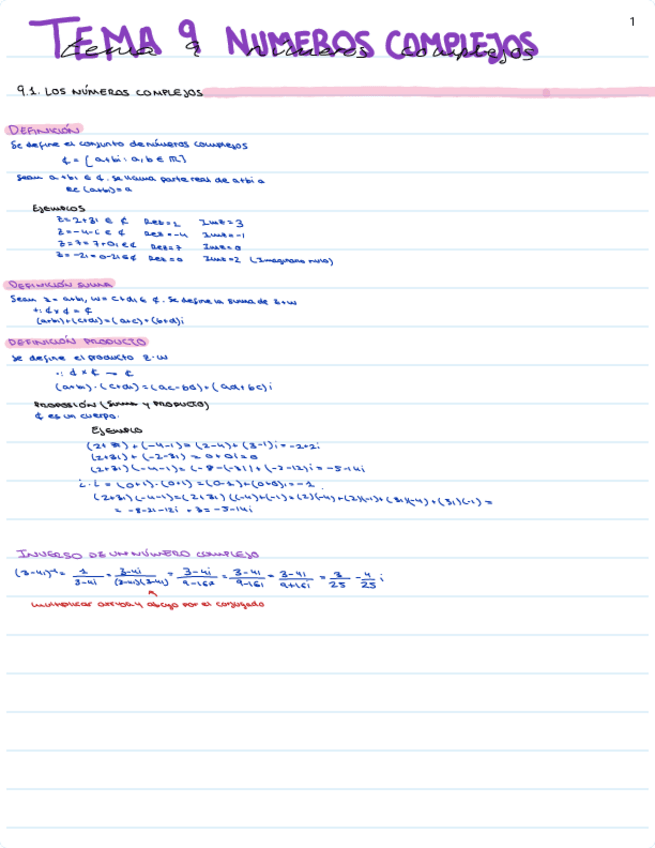 1
TEMA 9 NUMEROS COMPLEJOS
tema 9 números complejos
9.1. LOS NÚMEROS COMPLEJOS
DEFINICIÓN
Se define el conjunto de números complejos
¢ = { a+bi : a, b ∈ ℝ }
Sean a+bi ∈ ¢. Se llama parte real de a+bi a
Re (a+bi) = a
EJEMPLOS
Z=2+3i ∈ ¢ Rez=2 Imz=3
Z=-4-i ∈ ¢ Rez=-4 Imz=-1
Z=7=7+0i ∈ ¢ Rez=7 Imz=0
Z=-2i=0-2i ∈ ¢ Rez=0 Imz=2 (Imaginario puro)
DEFINICIÓN SUMA
Sean z=a+bi, w=c+di ∈ ¢. Se define la suma de z+w
+: ¢ x ¢ = ¢
(a+bi)+(c+di)=(a+c)+(b+d)i
DEFINICIÓN PRODUCTO
Se define el producto z·w
·: ¢ x ¢ → ¢
(a+bi)·(c+di)=(ac-bd)+(ad+bc)i
PROPOSICIÓN (SUMA Y PRODUCTO)
¢ es un cuerpo.
EJEMPLO
(2+3i)+(-4-i)=(2-4)+(3-1)i=-2+2i
(2+3i)+(-2-3i)=0+0i=0
(2+3i)(-4-i)=(-8-(-3))+(-2-12)i=-5-14i
i·i=(0+i)·(0+i)=(0-1)+(0+0)i=-1
(2+3i)(-4-i)=(2+3i)((-4)+(-i))=(2)(-4)+(2)(-i)+(3i)(-4)+(3i)(-i)=
= -8-2i-12i+3=-5-14i
INVERSO DE UN NÚMERO COMPLEJO
(3-4i)⁻¹= 1/3-4i = 3-4i/(3-4i)(3-4i) = 3-4i/9-16i² = 3-4i/9-16i = 3-4i/9+16i = 3/25 - 4/25 i
multiplicar arriba y abajo por el conjugado